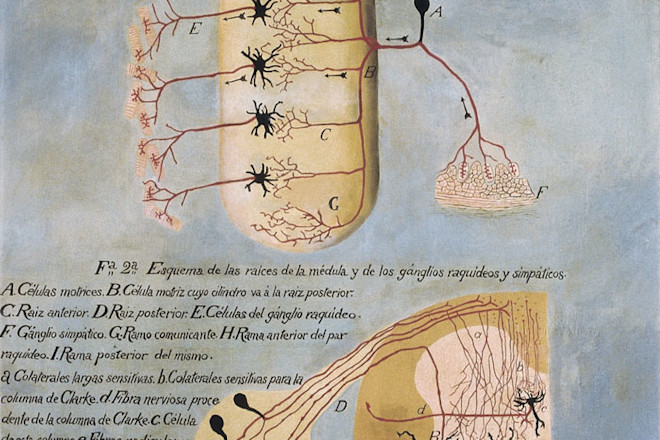 A
E
B
C
G
F
Fª 2ª Esquema de las raices de la médula y de los gánglios raquideos y simpáticos.
A. Células motrices. B. Célula motriz cuyo cilindro va á la raiz posterior.
C. Raiz anterior. D. Raiz posterior. E. Células del gánglio raquideo.
F. Gánglio simpático. G. Ramo comunicante. H. Rama anterior del par
raquideo. I. Rama posterior del mismo.
a Colaterales largas sensitivas. b. Colaterales sensitivas para la
columna de Clarke. d. Fibra nerviosa proce
dente de la columna de Clarke. c. Célula
a
b
D
d
c
B